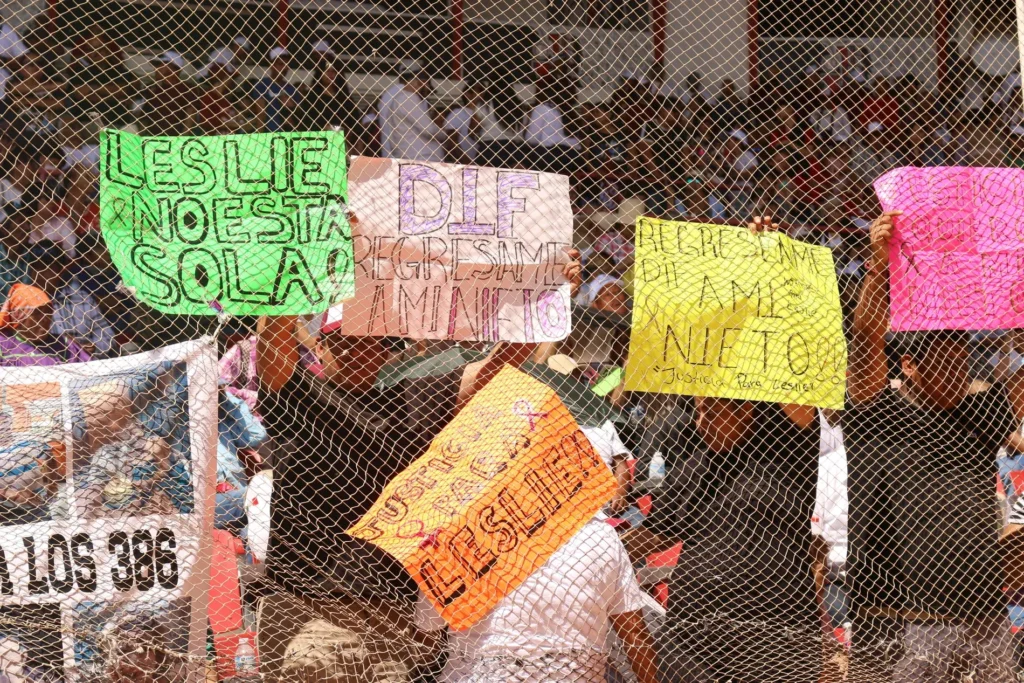 LESLIE
NO ESTA
SOLA
DIF
REGRESAME
A MI NIETO
REGRESENME
DIF A MI
NIETO
"Justicia Para Leslie!
JUSTICIA
PARA
LESLIE!!
LOS 386